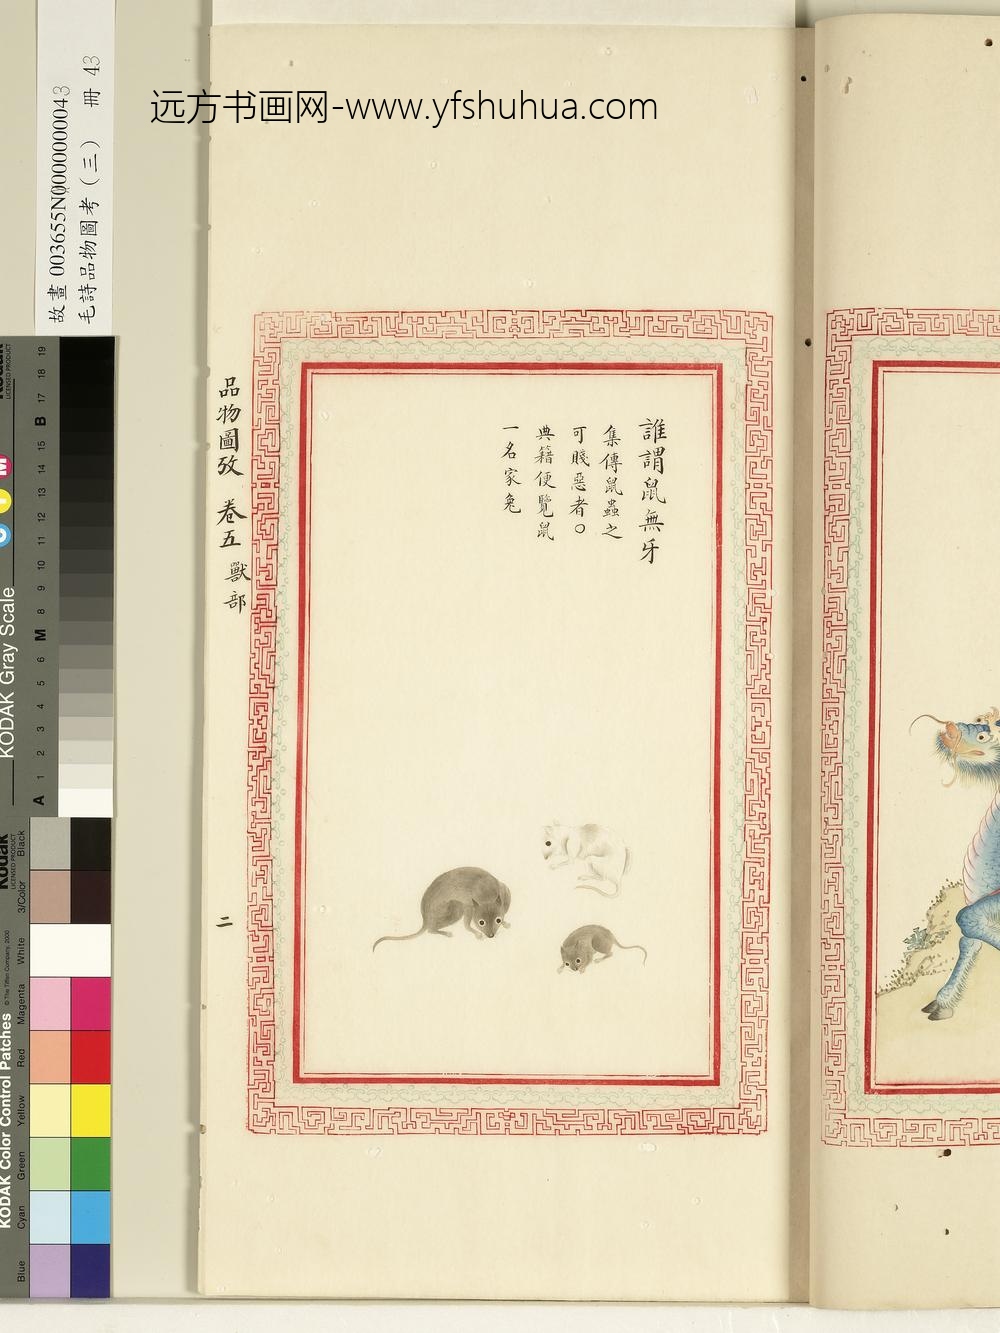 远方书画网-www.yfshuhua.com
故畫 003655N000000000043
毛詩品物圖考（三） 冊 43
誰謂鼠無牙
集傳鼠蟲之
可賤惡者○
典籍便覽鼠
一名家兔
品物圖攷 卷五 獸部
二
Kodak
LICENSED PRODUCT
KODAK Gray Scale
C Y M
A 1 2 3 4 5 6 M 8 9 10 11 12 13 14 15 B 17 18 19
Kodak
LICENSED PRODUCT
KODAK Color Control Patches
© The Tiffen Company, 2000
Blue Cyan Green Yellow Red Magenta White 3/Color Black